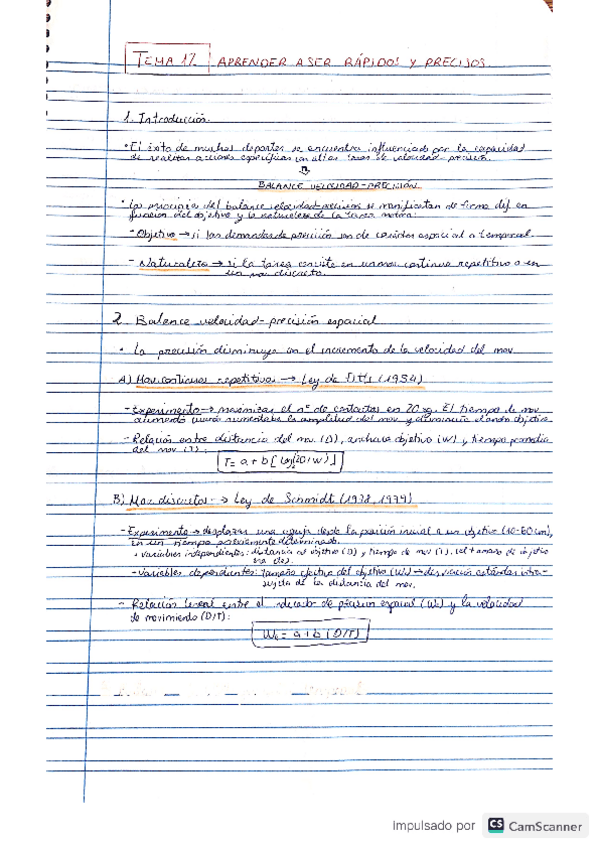 TEMA 12 APRENDER A SER RÁPIDOS Y PRECISOS.
1. Introducción.
• El éxito de muchos deportes se encuentra influenciado por la capacidad
de realizar acciones específicas con altas tasas de velocidad-precisión.
BALANCE VELOCIDAD-PRECISIÓN
• Los principios del balance velocidad-precisión se manifiestan de forma dif en
función del objetivo y la naturaleza de la tarea motora:
- Objetivo → si las demandas de precisión son de carácter espacial o temporal.
- Naturaleza → si la tarea consiste en un mov continuo repetitivo o en
un mov discreto.
2. Balance velocidad-precisión espacial
• La precisión disminuye con el incremento de la velocidad del mov
A) Mov continuos repetitivos → Ley de Fitts (1954)
- Experimento → maximizar el nº de contactos en 20 sg. El tiempo de mov
aumenta cuando aumentaba la amplitud del mov y disminuía el ancho objetivo.
- Relación entre distancia del mov. (D), anchura objetivo (W) y tiempo promedio
del mov (T):
T = a + b [log₂(2D/W)]
B) Mov discretos → Ley de Schmidt (1978, 1979)
- Experimento → desplazar una aguja desde la posición inicial a un objetivo (10-60 cm),
en un tiempo previamente determinado.
• Variables independientes: distancia al objetivo (D) y tiempo de mov (T), (el tamaño de objetivo
- Variables dependientes: Tamaño efectivo del objetivo (We) → desviación estándar intra-
sujeto de la distancia del mov.
- Relación lineal entre el de precisión espacial (We) y la velocidad
de movimiento (D/T):
We = a + b (D/T)
Impulsado por CS CamScanner